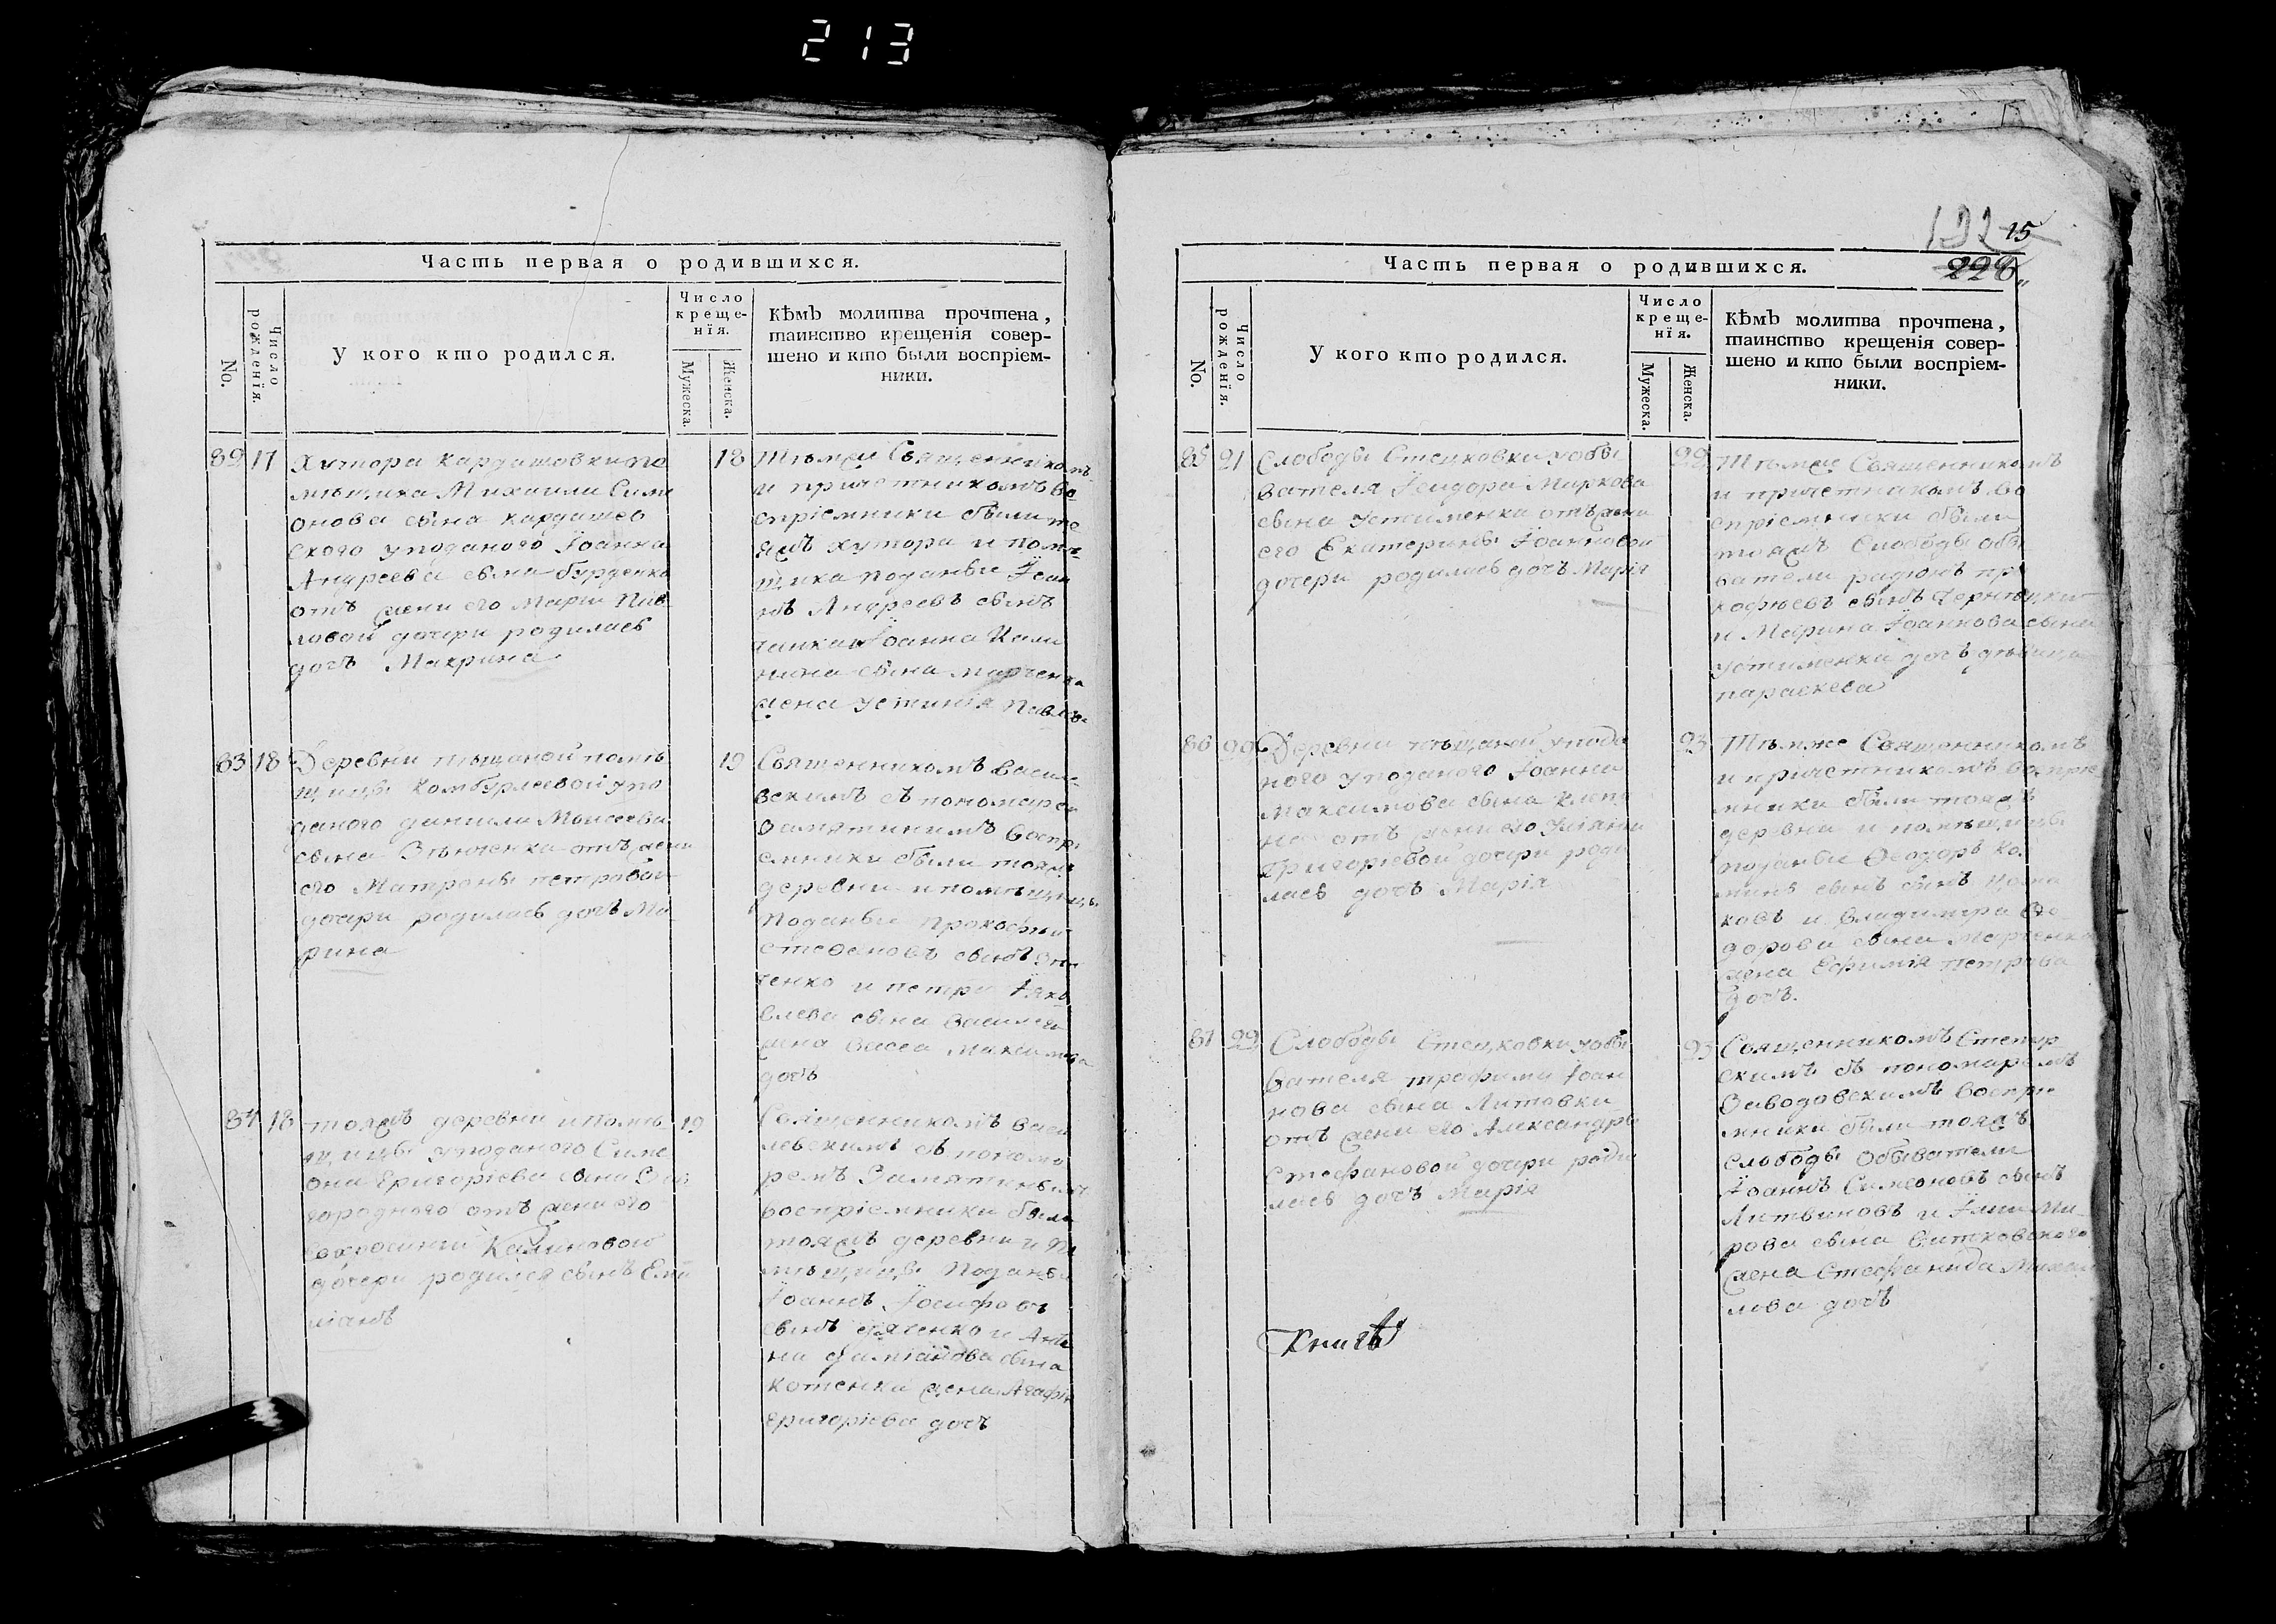 213
Часть первая о родившихся.
No.
Число рожденїя.
У кого кто родился.
Число
креще-
нїя.
Мужеска.
Женска.
Кѣмъ молитва прочтена,
таинство крещенїя совер-
шено и кто были воспрїем-
ники.
82 17 18
Хутора Кардашовки по
мѣщика Михаила Симе
онова сына Кардашев
ского уподаного Іоанна
Андреева сына бурденка
отъ жени его Марїи Пав
ловой дочери родилась
дочь Макрина
Тѣмже Священникомъ
и причетникомъ во
спрїемники были то
яжъ хутора и помѣ
щика поданые Іоан
нъ Андреевъ сынъ
Іоанна
сына марченка
жена Устинїя Павлова
83 18 19
Деревни пѣщаной помѣ
щицы Комбурлеевой упо
даного данила Моисеева
сына Зѣнченка отъ жени
его Матроны петровой
дочери родилась дочь Ма
рина
Священникомъ Васил
вскимъ съ пономаремъ
Замятинимъ воспрї
емники были тояжъ
деревни и помѣщицы
поданые Прокофїй
стефановъ сынъ
ченко и петра Іако
влева сына
жена Васса Максимова
дочь
84 18 19
тояжъ деревни и помѣ
щицы уподаного Симе
она Григорїева сына
городного отъ жени его
Евфросинїи Калиновой
дочери родился сынъ Еми
лїанъ
Священникомъ Васи
левскимъ съ понома
ремъ Замятинымъ
воспрїемники были
тояжъ деревни и по
мѣщицы поданые
Іоаннъ Іосифовъ
сынъ и
сына
Котенка жена Агафїя
Григорїева дочь
192 15
228
Часть первая о родившихся.
No.
Число рожденїя.
У кого кто родился.
Число
креще-
нїя.
Мужеска.
Женска.
Кѣмъ молитва прочтена,
таинство крещенїя совер-
шено и кто были воспрїем-
ники.
85 21 22
Слободы Стецковки уобы
вателя Маркова
сына Устименка отъ жени
его Екатерины Іоанновой
дочери родилась дочь Марїя
Тѣмже Священникомъ
и причетникомъ во
спрїемники были
тояжъ Слободы обы
ватели радїонъ про
кофїевъ сынъ
и Марина Іоаннова сына
устименка дочь дѣвица
параскева
86 22 23
Деревни пѣщаной упода
ного уподаного Іоанна
Максимова сына
отъ жени его Улїяны
Григорїевой дочери роди
лась дочь Марїя
Тѣмже Священникомъ
и причетникомъ воспрїе
мники были тояжъ
деревни и помѣщицы
поданые Феодоръ
сынъ
и Владимира Фео
дорова сына Марченка
жена Ефимїя Петрова
дочь.
87 22 23
Слободы Стецковки уобы
вателя трофима Іоан
нова сына Литовки
отъ жени его Александры
Стефановой дочери роди
лась дочь Марїя
Священникомъ
скимъ съ пономаремъ
Заводовскимъ воспрїе
мники были тояжъ
слободы обыватели
Іоаннъ Симеоновъ сынъ
Литвиновъ и
рова сына Ситковского
жена Стефанида Михай
лова дочь
Книгѣ